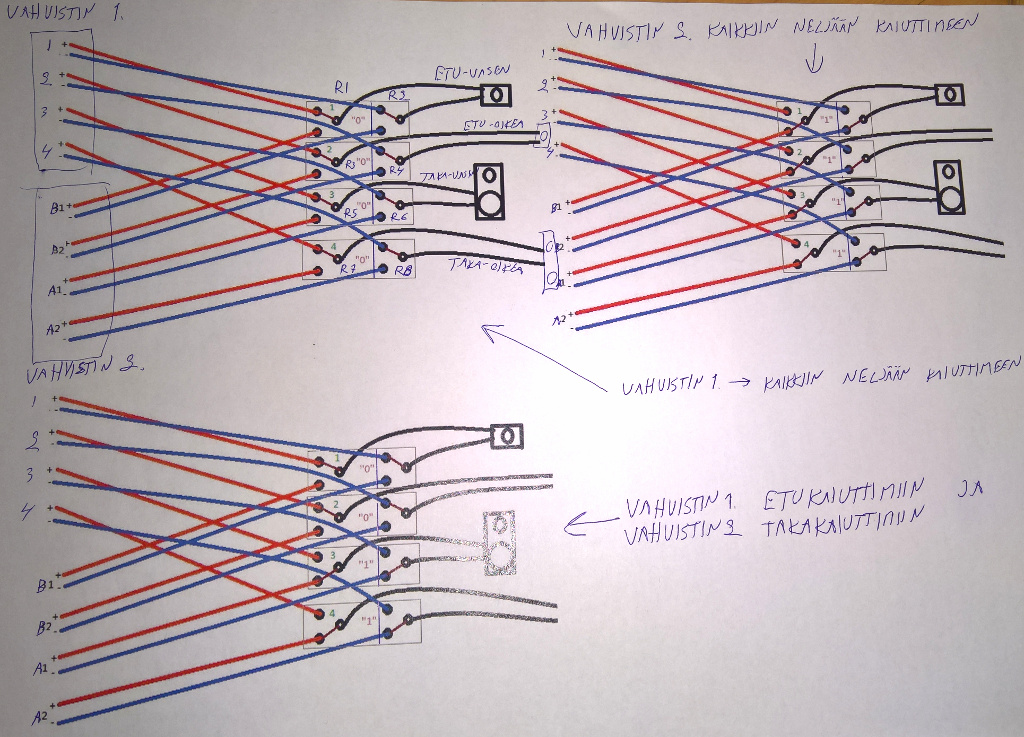 VAHVISTIN 1.
1 + -
2 + -
3 + -
4 + -
B1 + -
B2 + -
A1 + -
A2 + -
VAHVISTIN 2.
R1
R2
1 "0"
2 "0"
R3
R4
3 "0"
R5
R6
4 "0"
R7
R8
ETU-VASEN
ETU-OIKEA
TAKA-VASEN
TAKA-OIKEA
VAHVISTIN 2. KAIKKIIN NELJÄÄN KAIUTTIMEEN
1 + -
2 + -
3 + -
4 + -
B1 + -
B2 + -
A1 + -
A2 + -
1 "1"
2 "1"
3 "1"
4 "1"
VAHVISTIN 1. → KAIKKIIN NELJÄÄN KAIUTTIMEEN
1 + -
2 + -
3 + -
4 + -
B1 + -
B2 + -
A1 + -
A2 + -
1 "0"
2 "0"
3 "1"
4 "1"
VAHVISTIN 1. ETUKAIUTTIMIIN JA
VAHVISTIN 2 TAKAKAIUTTIMIIN